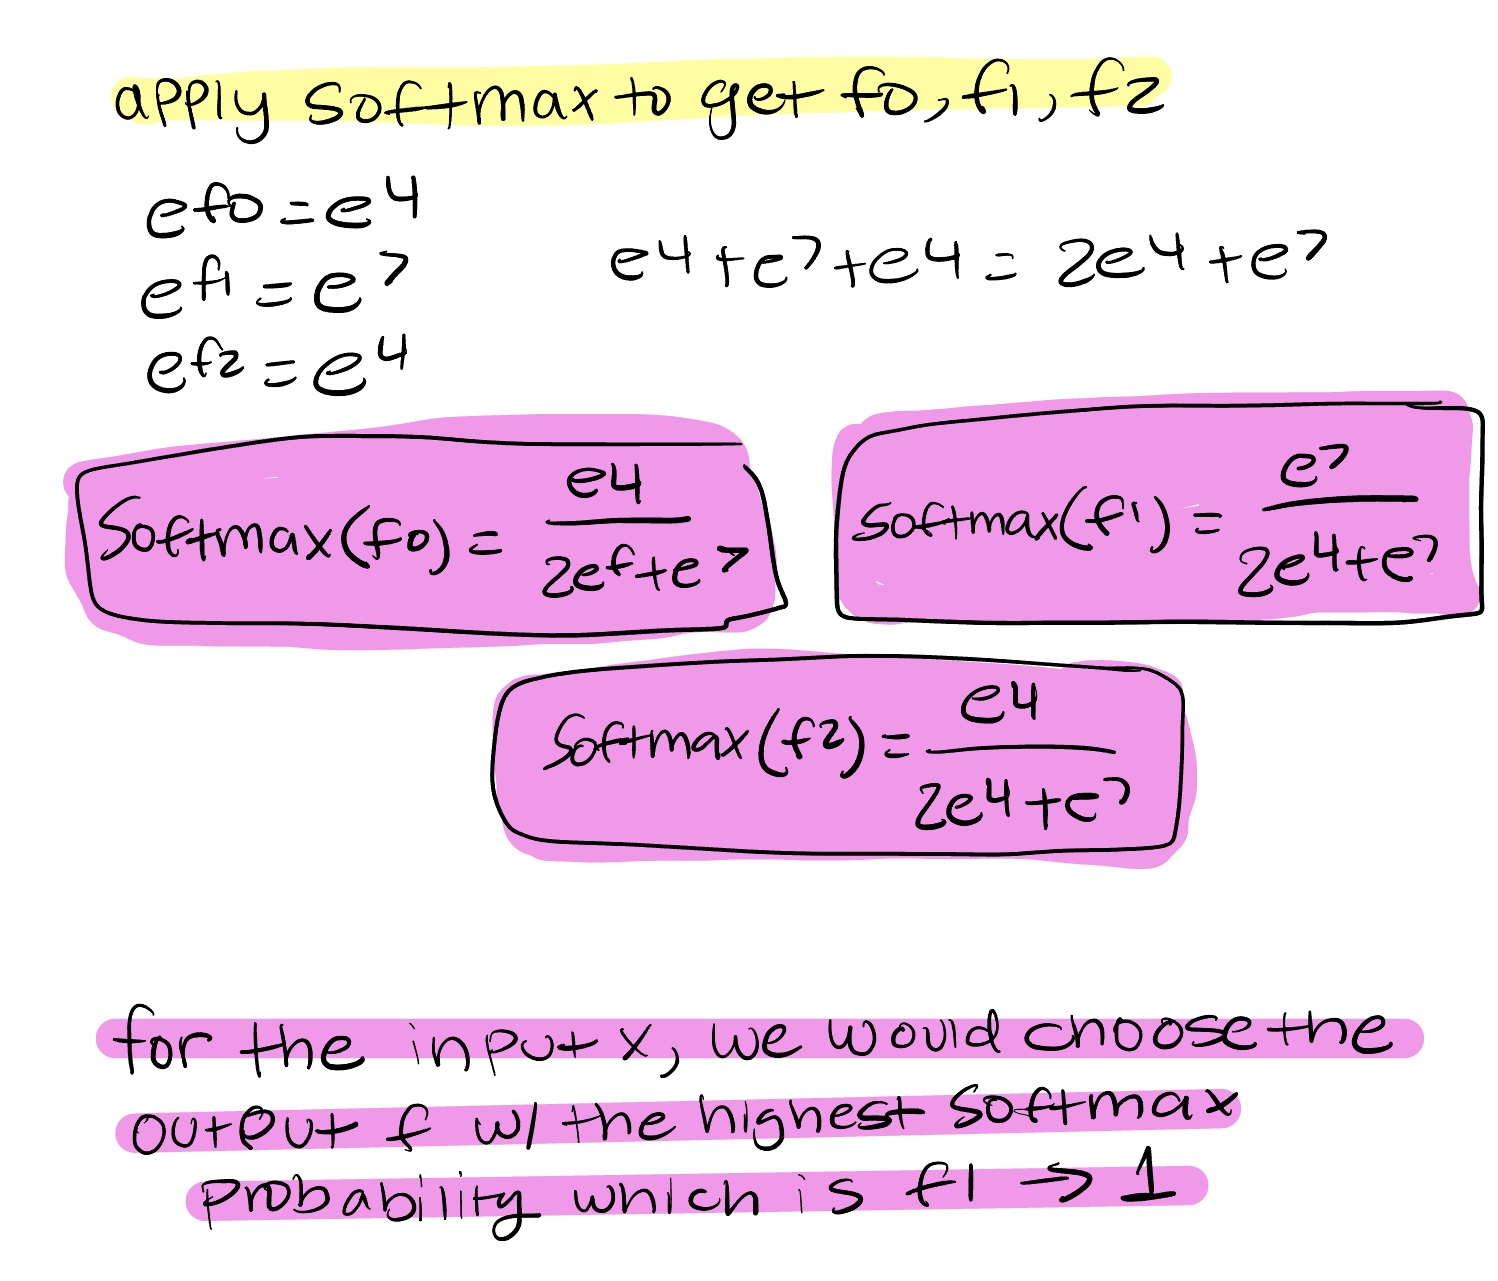 apply softmax to get f0, f1, f2
e^f0 = e^4
e^f1 = e^7
e^f2 = e^4
e^4 + e^7 + e^4 = 2e^4 + e^7
Softmax(f0) = e^4 / (2e^f + e^7)
softmax(f1) = e^7 / (2e^4 + e^7)
Softmax(f2) = e^4 / (2e^4 + e^7)
for the input x, we would choose the
output f w/ the highest softmax
probability which is f1 → 1